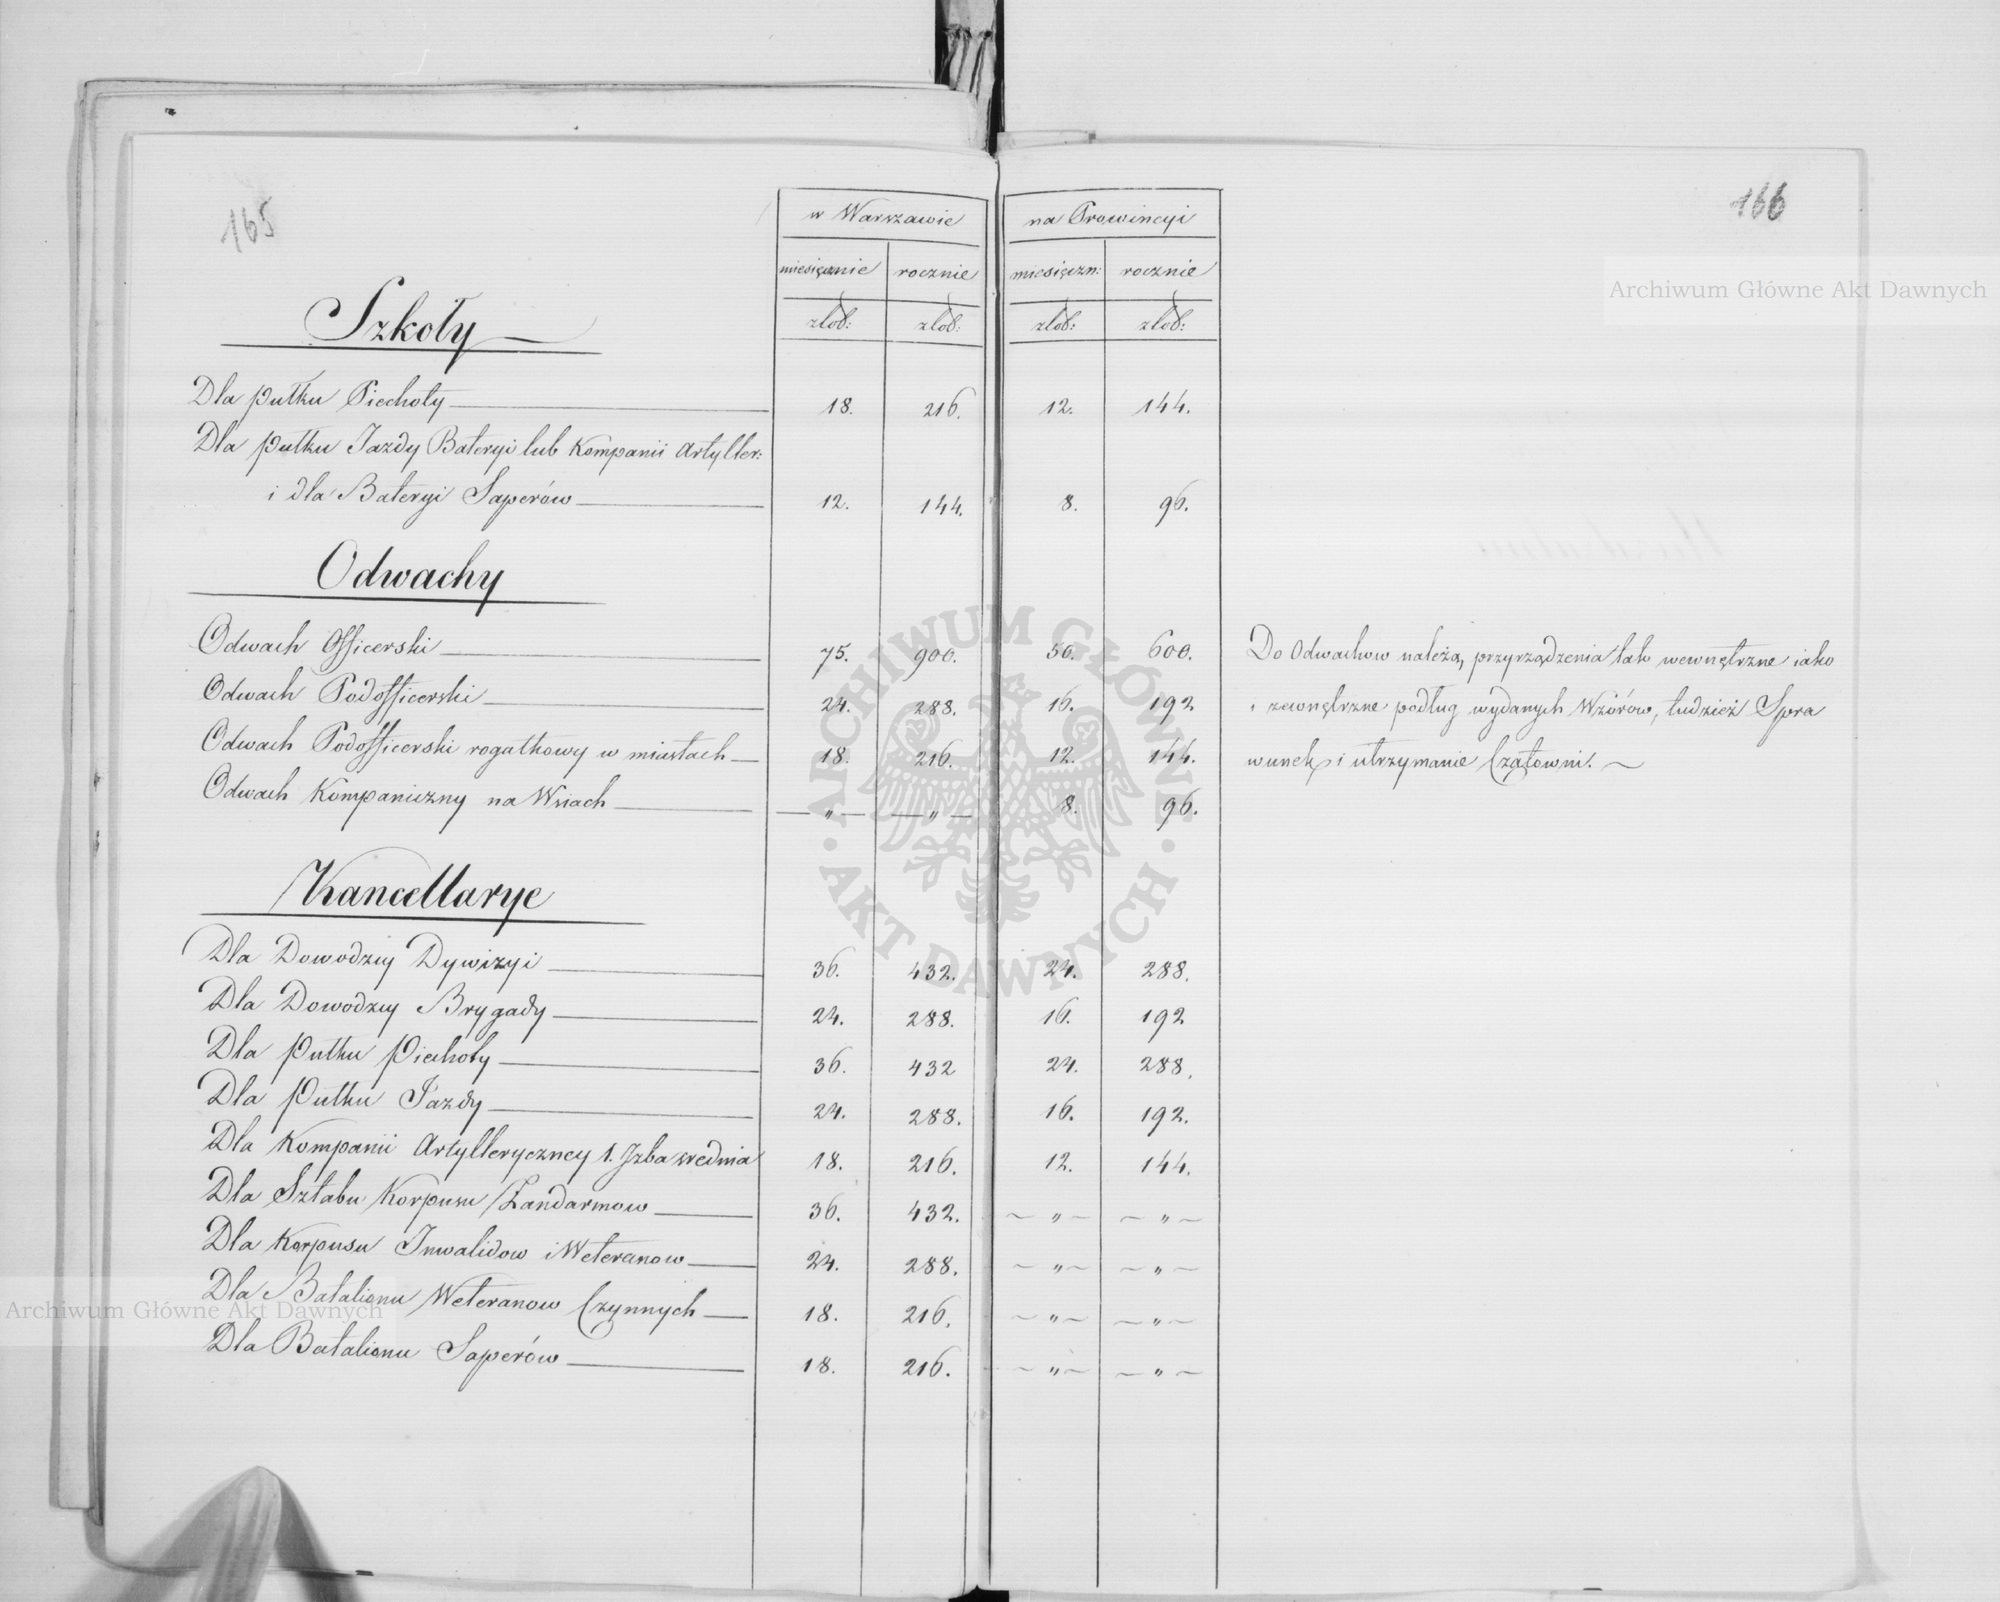 165
166
w Warszawie na Prowincyi
miesięcznie rocznie miesięczn: rocznie
złoł: złoł: złoł: złoł:
Szkoły
Dla pułku Piechoty 18. 216. 12. 144.
Dla pułku Jazdy Bateryi lub Kompanii Artyller:
i dla Bateryi Saperów 12. 144. 8. 96.
Odwachy
Odwach Officerski 75. 900. 50. 600. Do Odwachow należą, przyrządzenia tak wewnętrzne iako
Odwach Podofficerski 24. 288. 16. 192 i zewnętrzne podług wydanych Wzórów, tudzież Spra
Odwach Podofficerski rogatkowy w miastach 18. 216. 12. 144. wunek i utrzymanie Czatowni.
Odwach Kompaniczny na Wsiach — " — — " — 8. 96.
Kancellarye
Dla Dowodzcy Dywizyi 36. 432. 24. 288.
Dla Dowodzcy Brygady 24. 288. 16. 192
Dla Pułku Piechoty 36. 432 24. 288.
Dla Pułku Jazdy 24. 288. 16. 192.
Dla Kompanii Artylleryczney 1. Izba srednia 18. 216. 12. 144.
Dla Sztabu Korpusu Żandarmow 36. 432. — " — — " —
Dla Korpusu Inwalidow i Weteranow 24. 288. — " — — " —
Dla Batalionu Weteranow Czynnych 18. 216. — " — — " —
Dla Batalionu Saperów 18. 216. — " — — " —
Archiwum Główne Akt Dawnych
Archiwum Główne Akt Dawnych
ARCHIWUM GŁÓWNE
AKT DAWNYCH